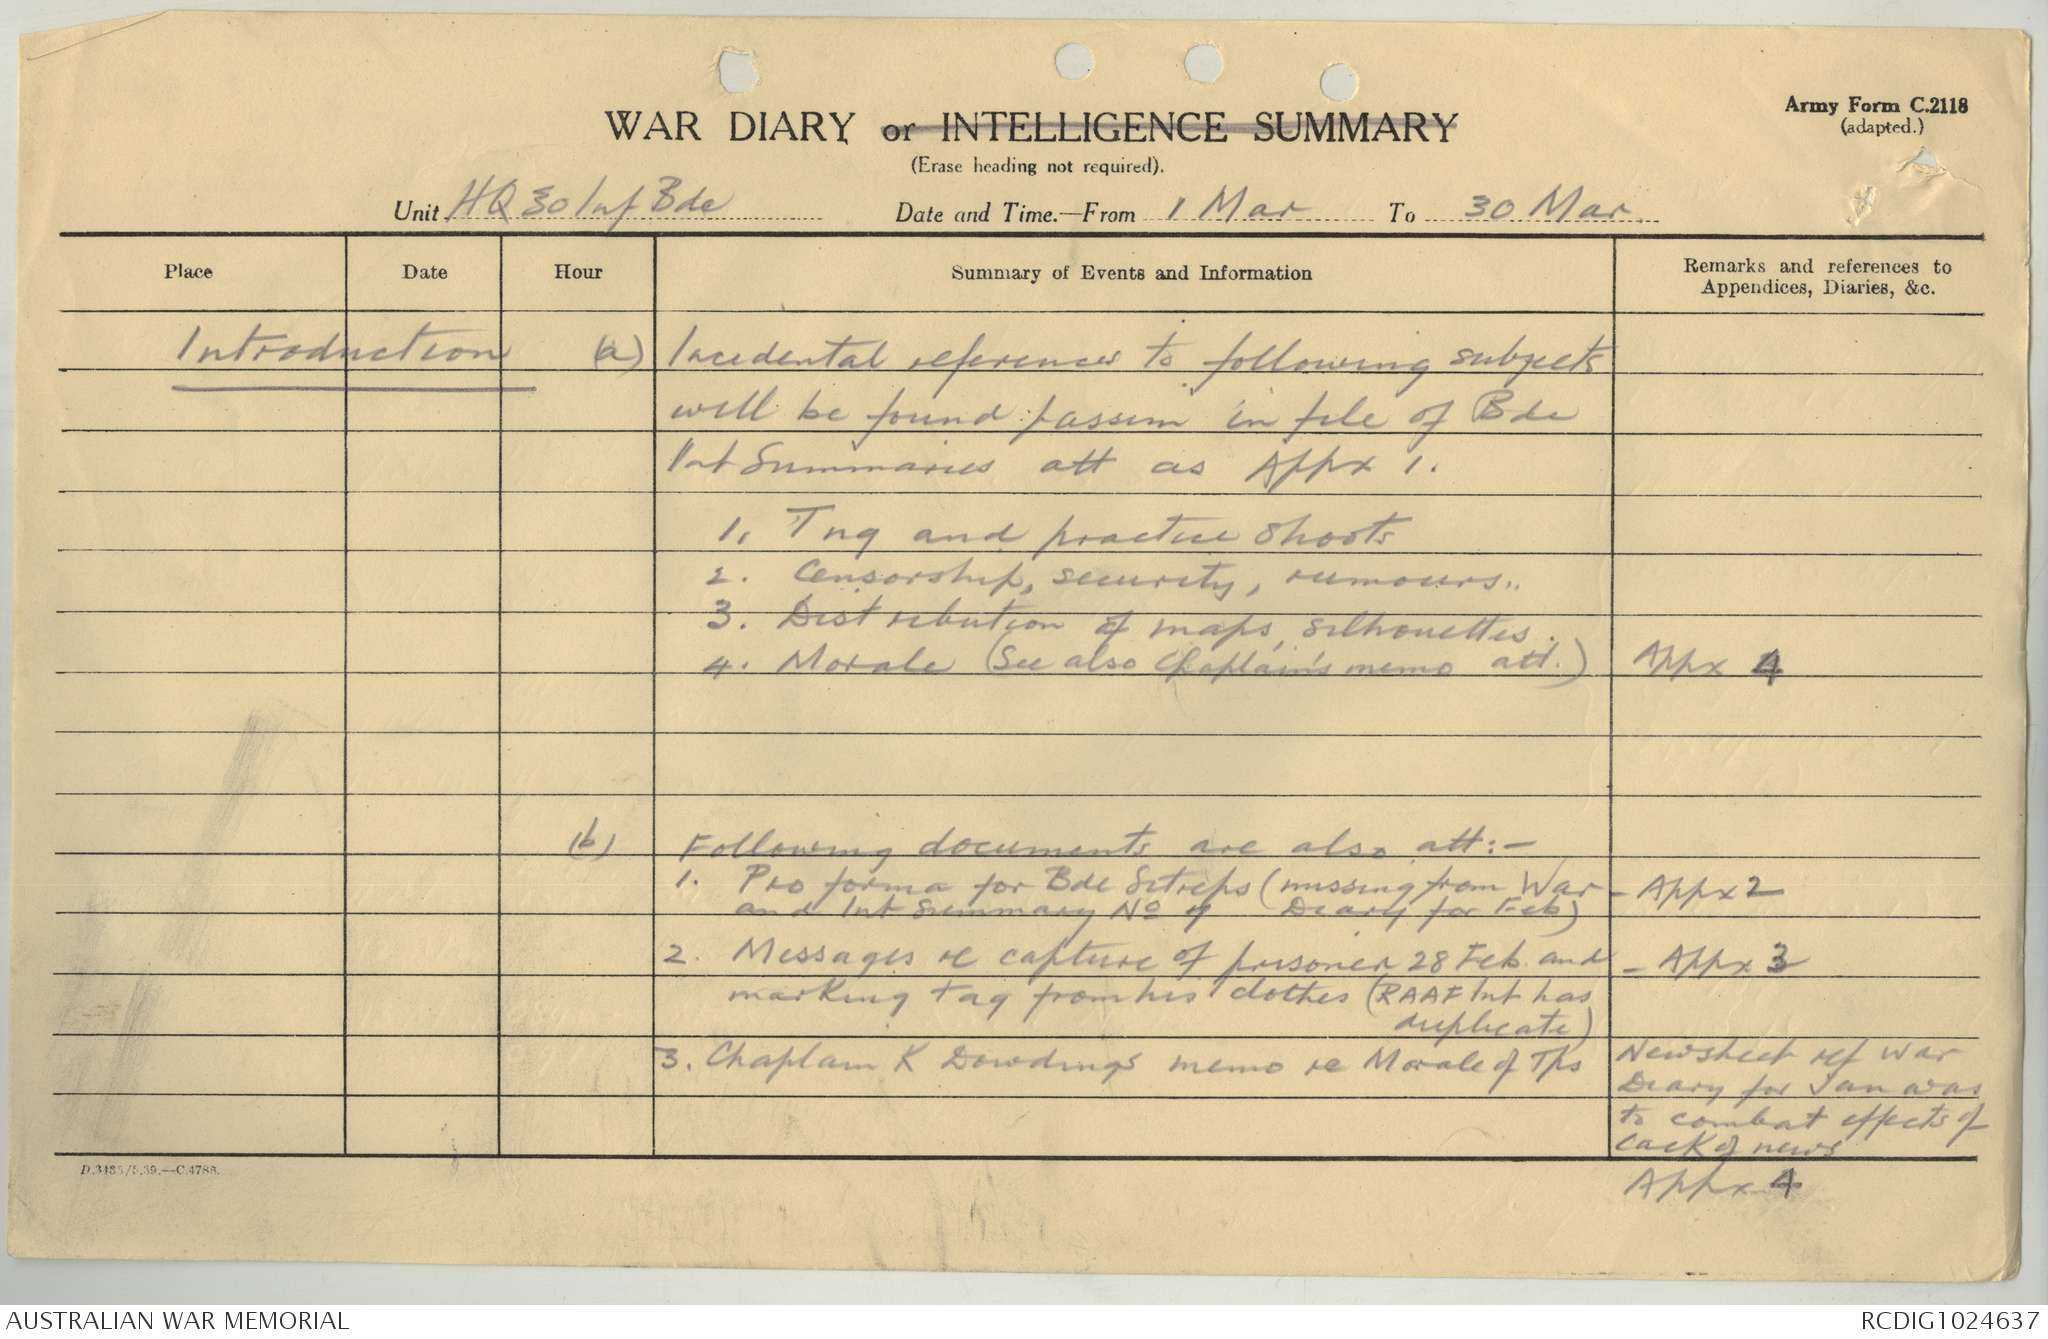 WAR DIARY or INTELLIGENCE SUMMARY
(Erase heading not required).
Army Form C.2118
(adapted.)
Unit HQ 30 Inf Bde Date and Time.—From 1 Mar To 30 Mar.
Place Date Hour Summary of Events and Information Remarks and references to Appendices, Diaries, &c.
Introduction (a) Incidental references to following subjects
will be found passim in file of Bde
Int Summaries att as Appx 1.
1. Tng and practice shoots
2. Censorship, security, rumours..
3. Distribution of maps, silhouettes.
4. Morale (See also Chaplain's memo att.) Appx 4
(b) Following documents are also att:-
1. Pro forma for Bde Sitreps (missing from War – Appx 2
and Int Summary No Diary for Feb)
2. Messages re capture of prisoner 28 Feb and – Appx 3
marking tag from his clothes (RAAF Int has
duplicate)
3. Chaplain K Dowding's memo re Morale of Tps
Newsheet ref War
Diary for Jan was
to combat effects of
lack of news
Appx 4
D.3435/5.39.—C.4788.
AUSTRALIAN WAR MEMORIAL
RCDIG1024637